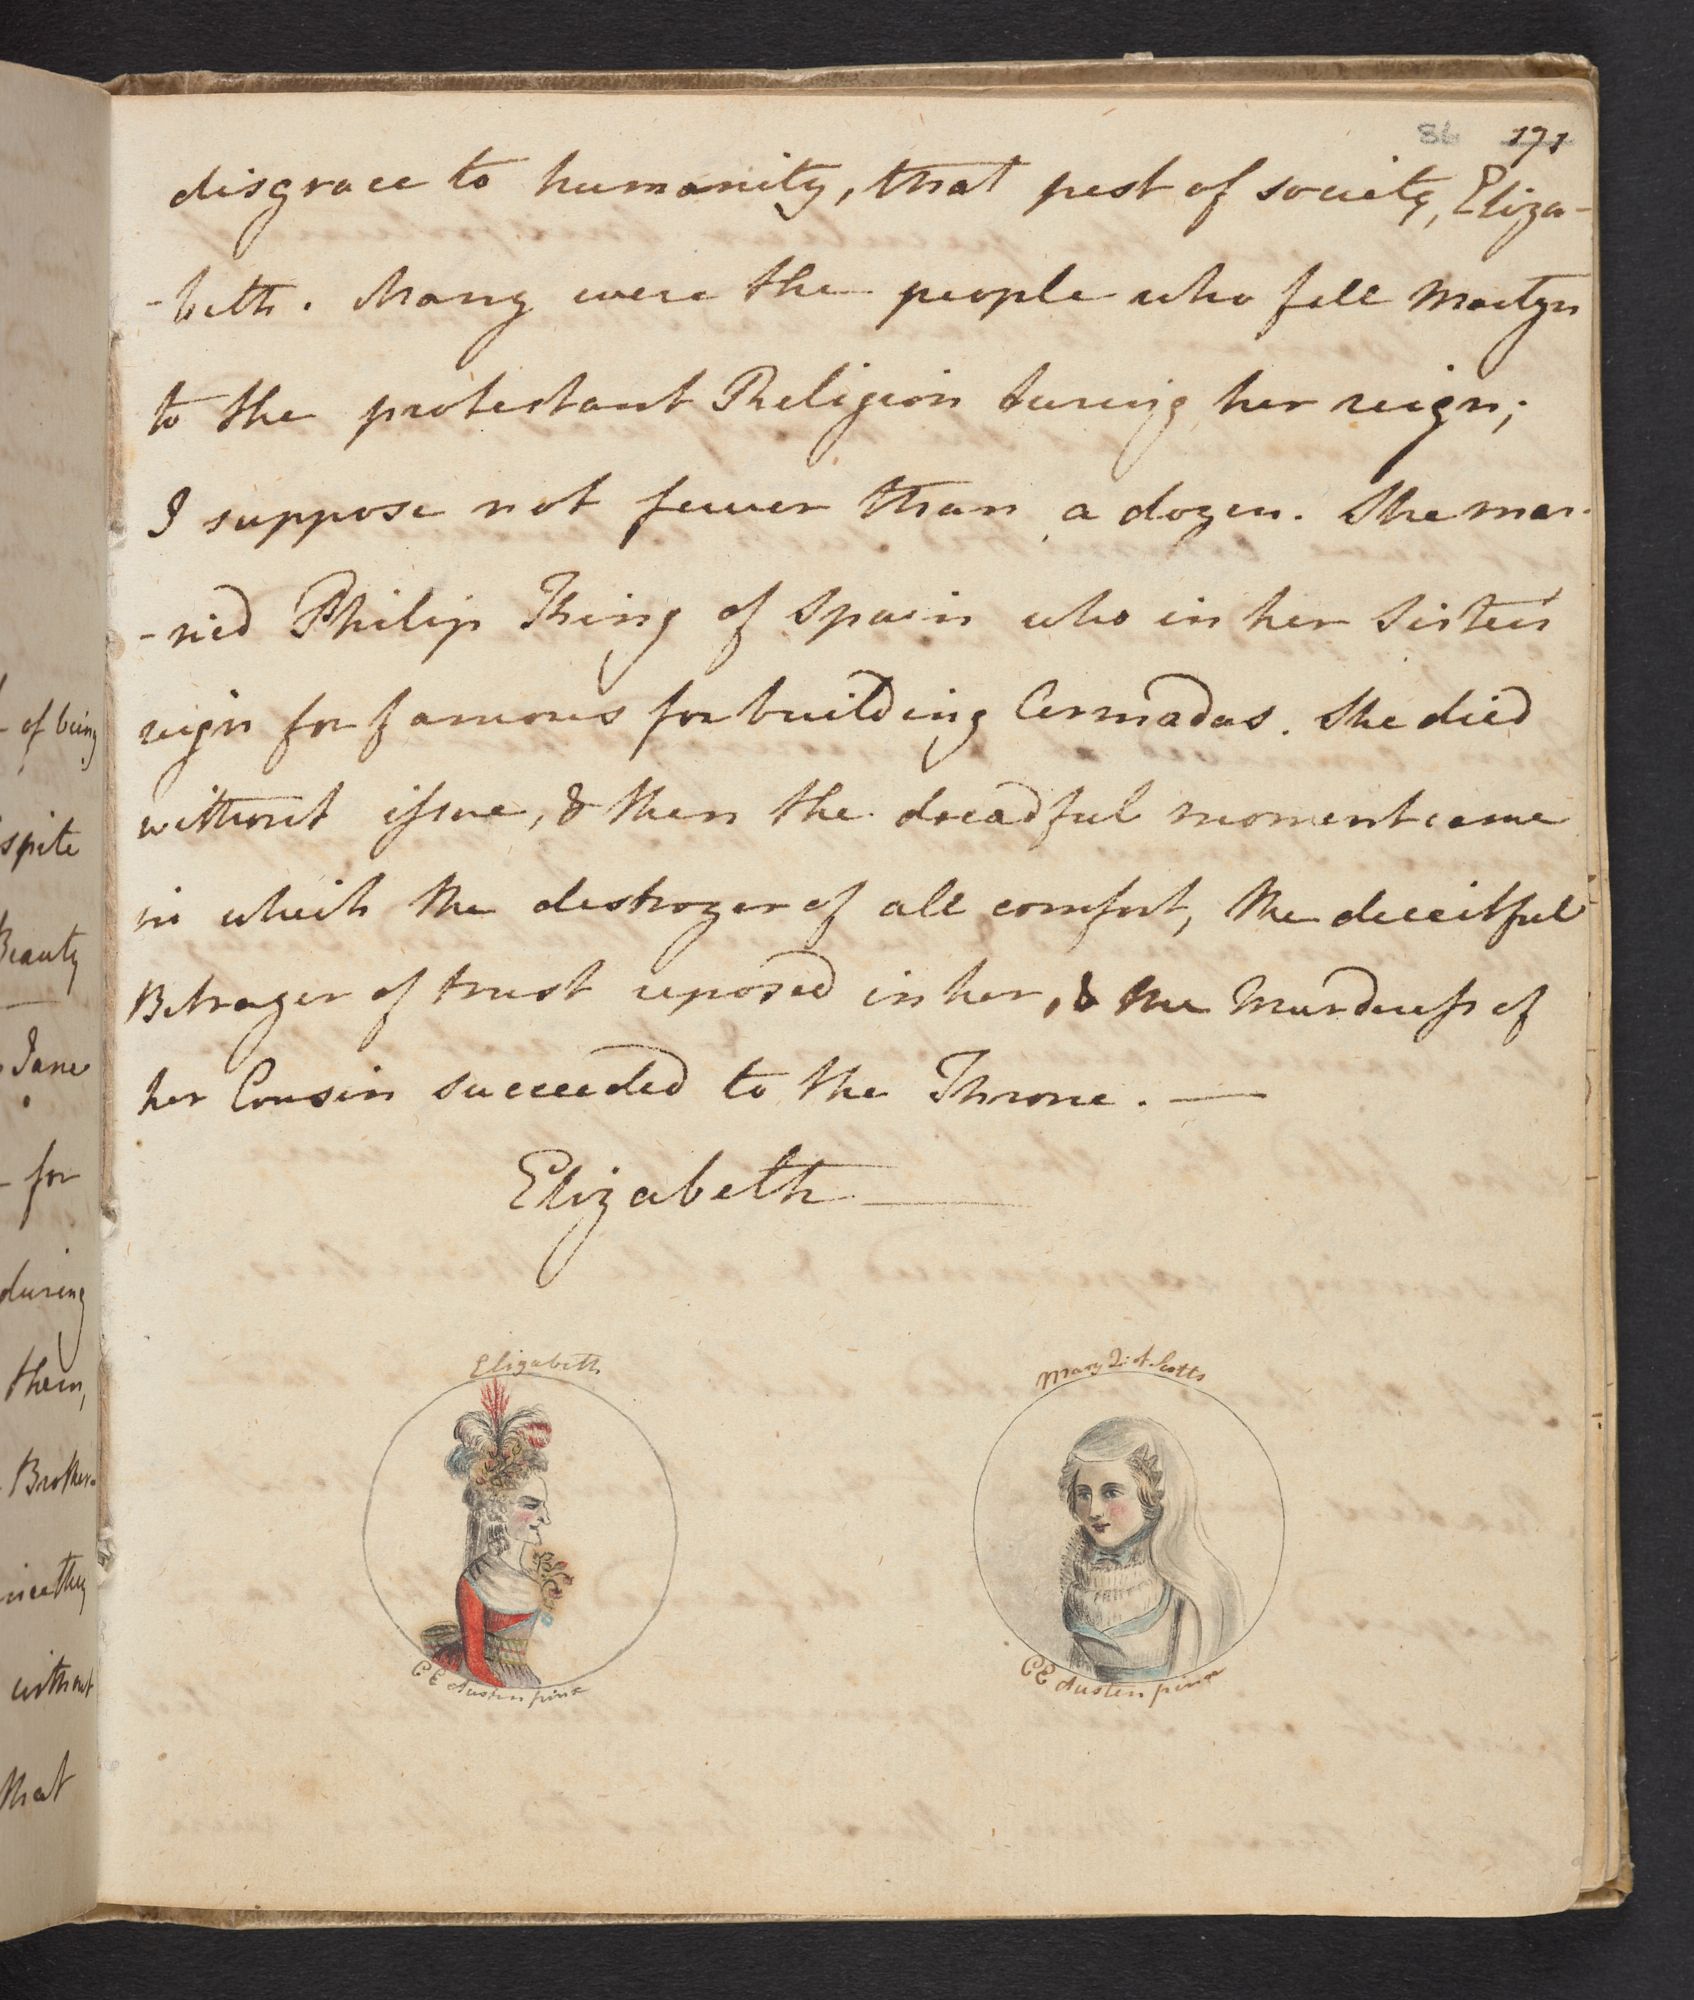 86 171
disgrace to humanity, that pest of society, Eliza-
-beth. Many were the people who fell Martyrs
to the protestant Religion during her reign;
I suppose not fewer than a dozen. She mar-
-ried Philip King of Spain who in her Sister's
reign for famous for building Armadas. She died
without issue, & then the dreadful moment came
in which the destroyer of all comfort, the deceitful
Betrayer of trust reposed in her, & the Murderess of
her Cousin succeeded to the Throne. —
Elizabeth —
Elizabeth
C E Austen pinx
Mary Q: of Scotts
C E Austen pinx
- of being
spite
Beauty
Jane
- for
during
them,
Brother-
without
that